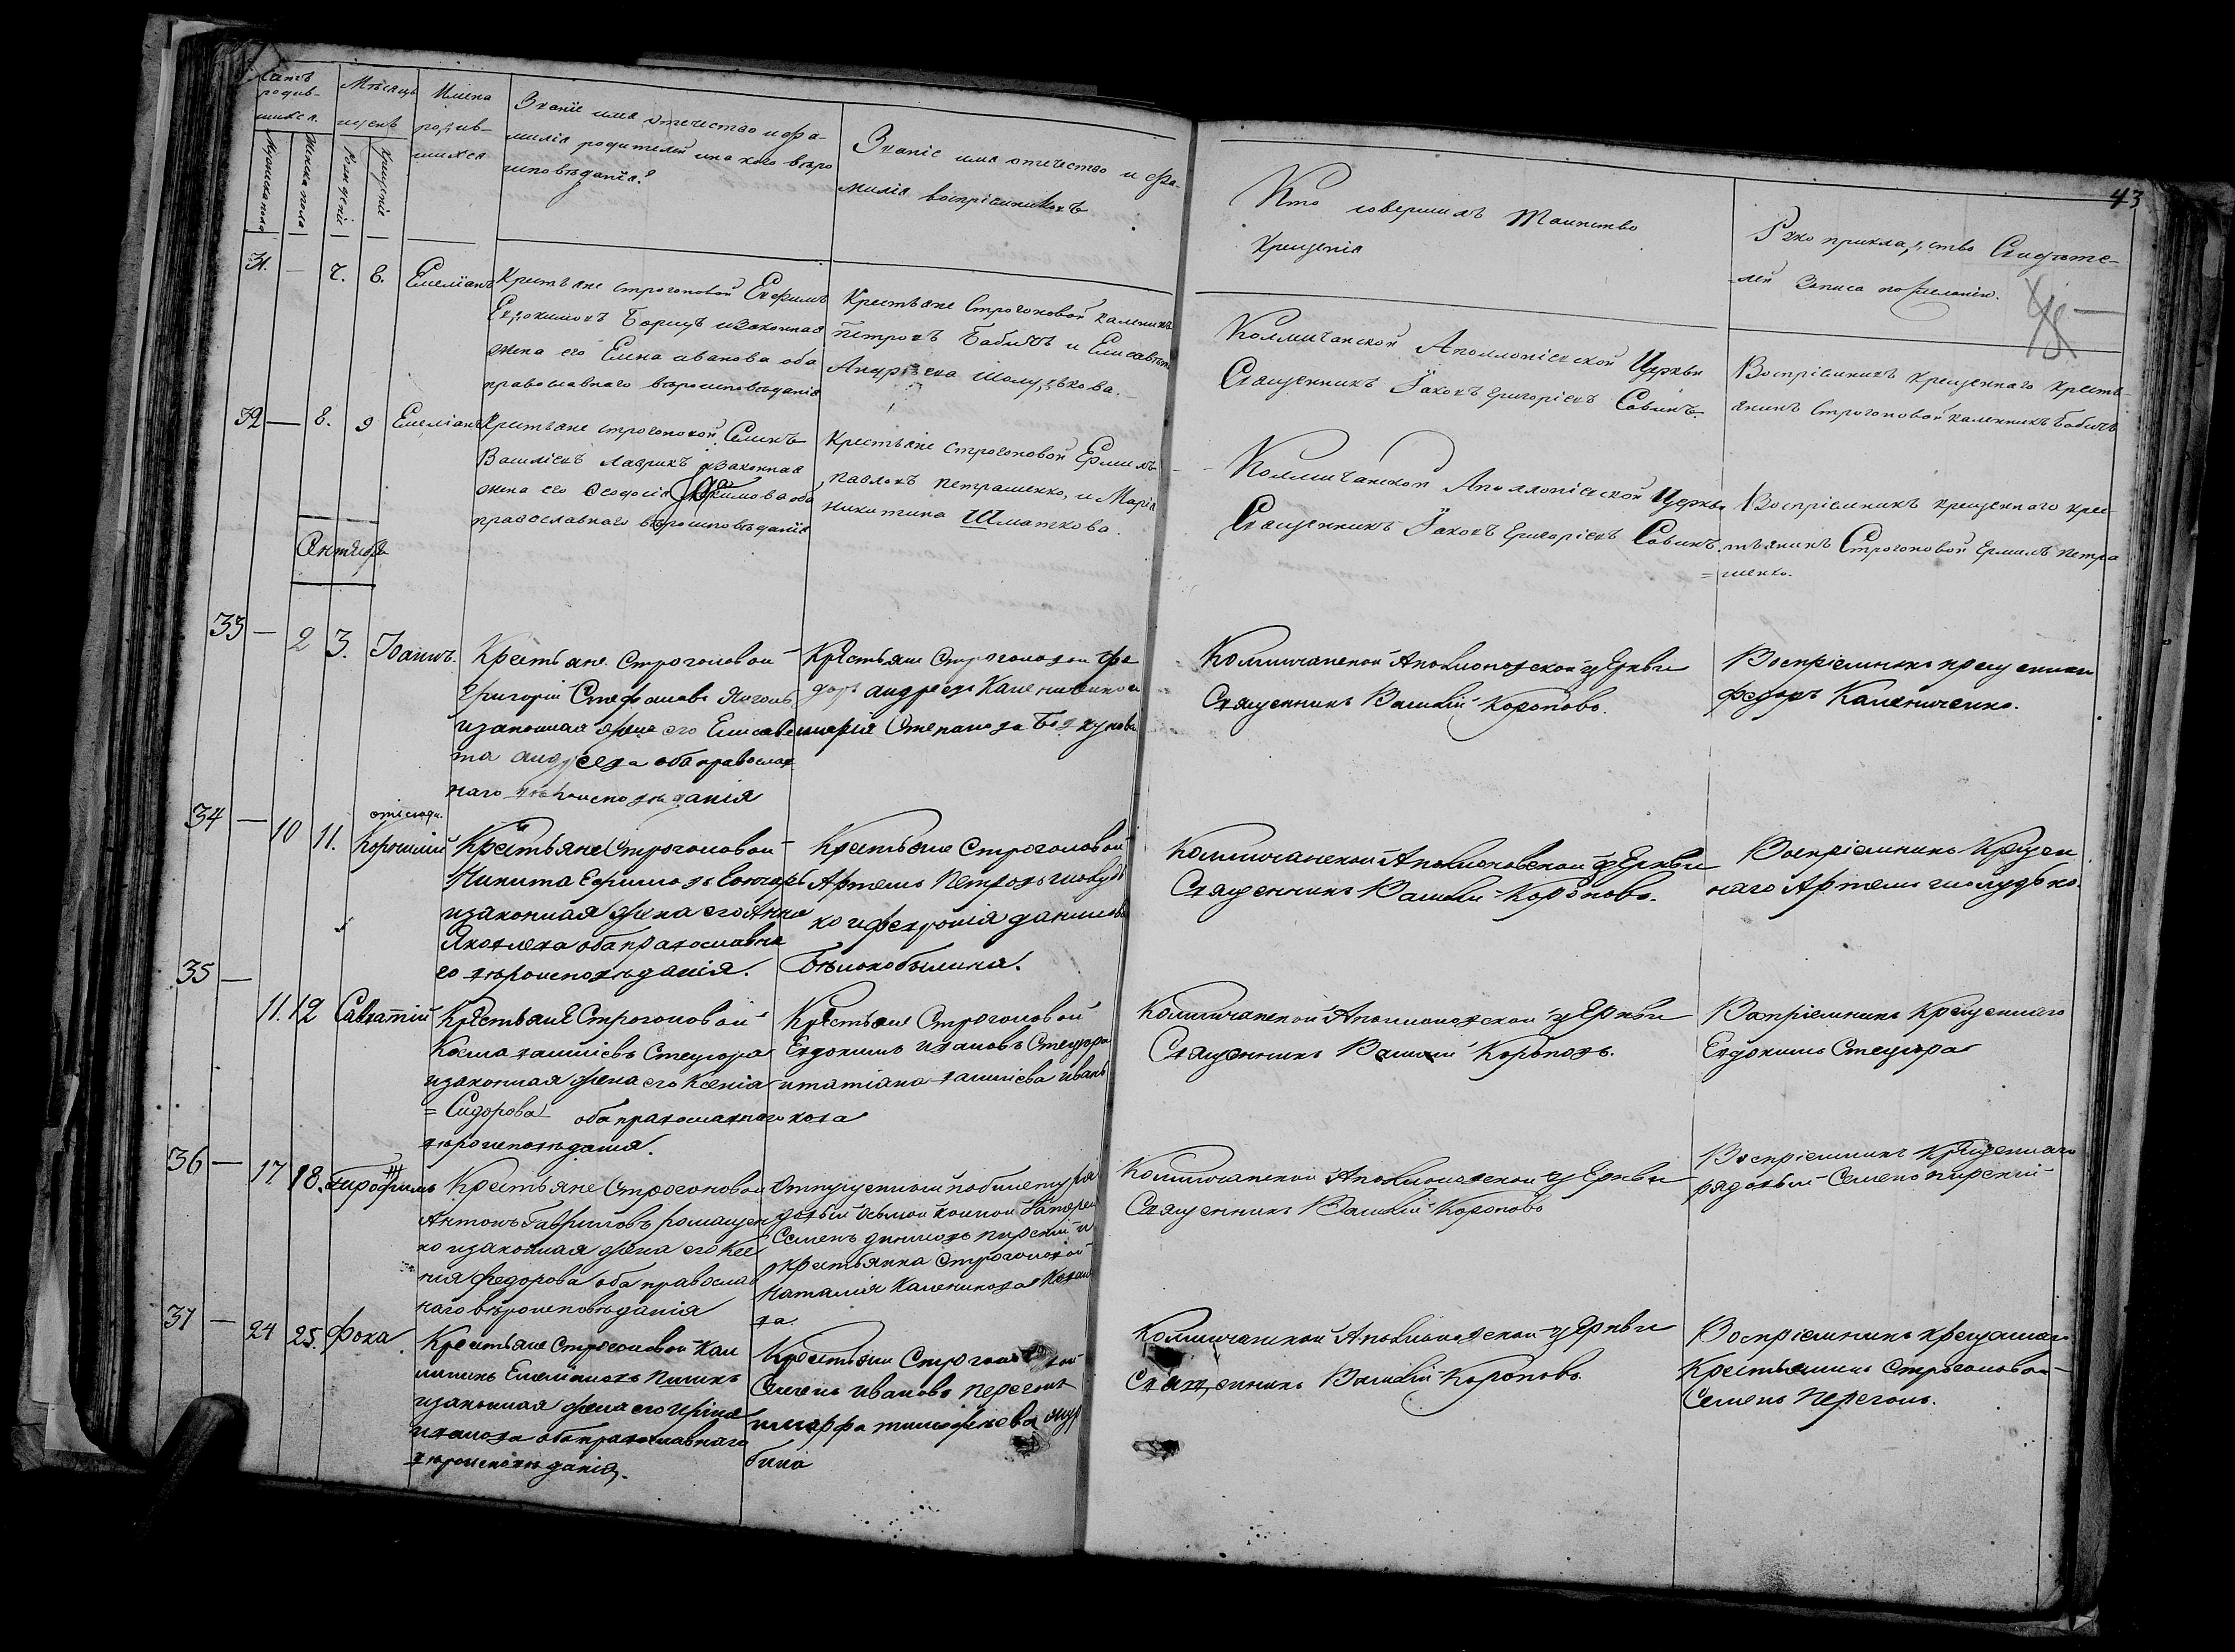 43
Счетъ
родив-
шихся.
Мужеска пола
Женска пола
Мѣсяцъ
и день
Рожденія
Крещенія
Имена
родив-
шихся
Званіе имя отечество и фа-
милія родителей и на кого вѣро
исповѣданія?
Званіе имя отечество и фа-
милія воспріемниковъ
Кто совершилъ Таинство
Крещенія
Рукоприкладство Свидѣте-
лей Записа по желанію.
31. — 7. 8. Емеліанъ
Крестьяне Строгоновой Евфимъ
Евдокимовъ Борицъ и законная
жена его Елена иванова оба
православнаго вѣроисповѣданія
Крестьяне Строгоновой Каленикъ
Петровъ Бабичъ и Елисавета
Андреева Шолудькова.
Колмичанской Аполлоніевской Церкви
Священникъ Іаковъ Григоріевъ Савинъ.
Воспріемникъ крещеннаго кресть-
янинъ Строгоновой Каленикъ Бабичъ
32 — 8. 9 Емеліанъ
Крестьяне Строгоновой Семенъ
Василіевъ Лаврикъ и законная
жена его Феодосія оба
православнаго вѣроисповѣданія
Крестьяне Строгоновой Ермилъ
Павловъ Петрашенко, и Марія
Никитина Шматкова.
Колмичанской Аполлоніевской Церкви
Священникъ Іаковъ Григоріевъ Савинъ.
Воспріемникъ крещеннаго крес-
тьянинъ Строгоновой Ермилъ Петра
=шенко.
Сентябрь
33 — 2 3. Іоаннъ.
Крестьяне Строгоновой
Григорій Стефановъ
и законная жена его Елисаве
та андреева оба православ
наго вѣроисповѣданія
Крестьяне Строгоновой Фе
доръ андреевъ Калениченко и
марія Степанова
Колмичанской Аполлоновской церкви
Священникъ Василій Короповъ.
Воспріемникъ крещеннаго
Федоръ Калениченко.
34 — 10 11. Корнилій
Крестьяне Строгоновой
Никита Ефимовъ Гончаръ
и законная жена его Анна
Яковлева оба православна
го вѣроисповѣданія.
Крестьяне Строгоновой
Артемъ Петровъ Шолудь
ко и Февронія данилова
Бѣлокобылина.
Колмичанской Аполлоновской церкви
Священникъ Василій Короповъ.
Воспріемникъ Крещен
наго Артемъ Шолудько.
35 —
11. 12 Савватій
Крестьяне Строгоновой
Косма василіевъ Стецюра
и законная жена его Ксенія
=Сидорова оба православнаго
вѣроисповѣданія.
Крестьяне Строгоновой
Евдокимъ ивановъ Стецюра
и татіана василіева иванъ
кова
Колмичанской Аполлоновской церкви
Священникъ Василій Короповъ.
Воспріемникъ Крещеннаго
Евдокимъ Стецюра
36 — 17 18. Трофимъ
Крестьяне Строгоновой
Антонъ Гавриловъ Романен
ко и законная жена его Ксе
нія Федорова оба православ
наго вѣроисповѣданія
Отпущенный по билету ря
довый осьмой конной батареи
Семенъ Пирскій и
крестьянка Строгоновой
Наталія Каленикова
ва.
Колмичанской Аполлоновской церкви
Священникъ Василій Короповъ
Воспріемникъ Крещеннаго
рядовый Семенъ Пирскій
37 — 24 25. Фока.
Крестьяне Строгоновой Кал
линикъ Емеліановъ
и законная жена его Ирина
иванова оба православнаго
вѣроисповѣданія.
Крестьяне Строгоновой
Семенъ ивановъ Перегонъ
и марфа тимофеева
бина
Колмичанской Аполлоновской церкви
Священникъ Василій Короповъ.
Воспріемникъ крещеннаго
Крестьянинъ Строгоновой
Семенъ Перегонъ.